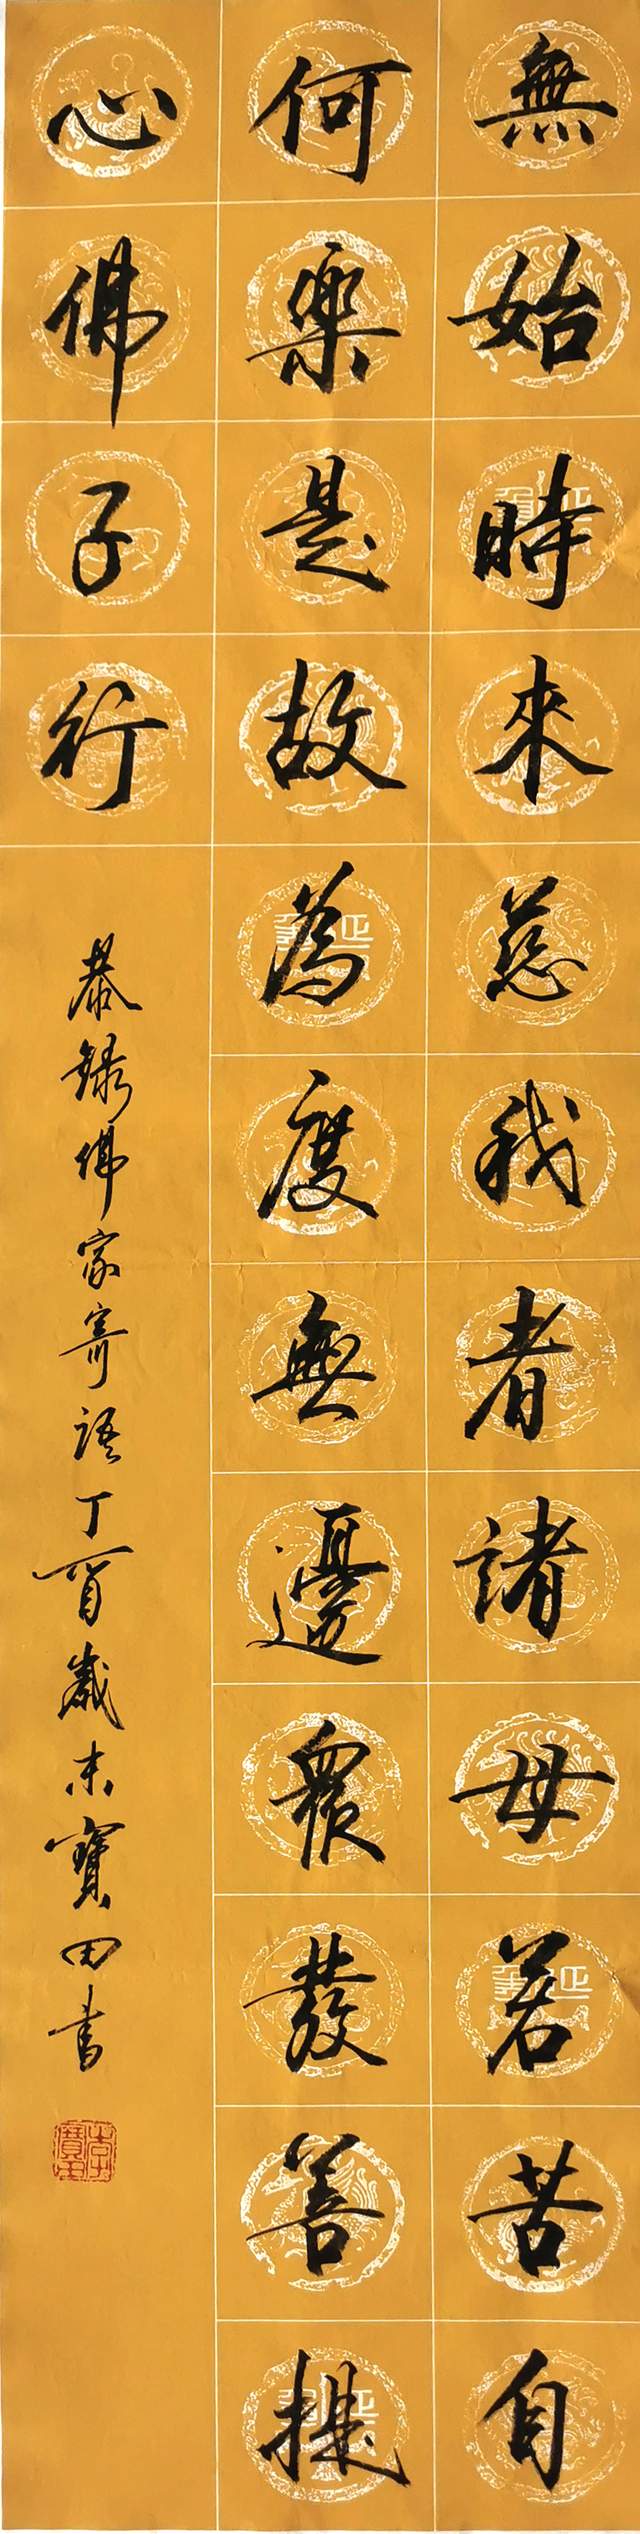 無始時來慈我者諸母若苦自
何樂是故為度無邊眾發善提
心佛子行
恭錄佛家寄語丁酉歲末寶田書
李寶田